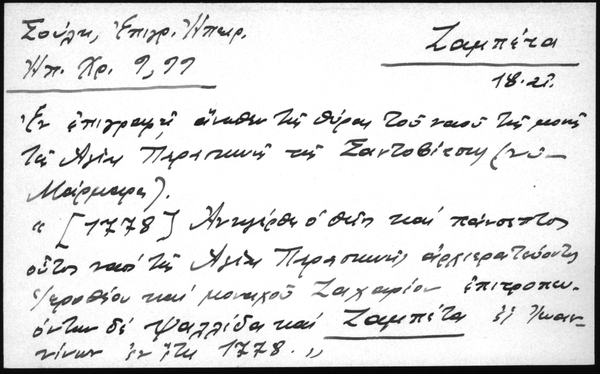 Σούλη, Ἐπιγρ. Ἠπειρ.
Ζαμπέτα
Ἠπ. Χρ. 9, 99
18 αἰ.
Ἐν ἐπιγραφῇ ἄνωθεν τῆς θύρας τοῦ ναοῦ τῆς μονῆς
τῆς Ἁγίας Παρασκευῆς τῆς Σαντοβίτσης (νῦν
Μάρμαρα).
" [1778] Ἀνηγέρθη ὁ θεῖος καὶ πάνσεπτος
οὗτος ναὸς τῆς Ἁγίας Παρασκευῆς, ἀρχιερατεύοντος
Ἱεροθέου καὶ μοναχοῦ Ζαχαρίου ἐπιτροπευ-
όντων δέ Ψαλλίδα καὶ Ζαμπέτα ἐξ Ἰωαν-
νίνων ἐν ἔτει 1778. "